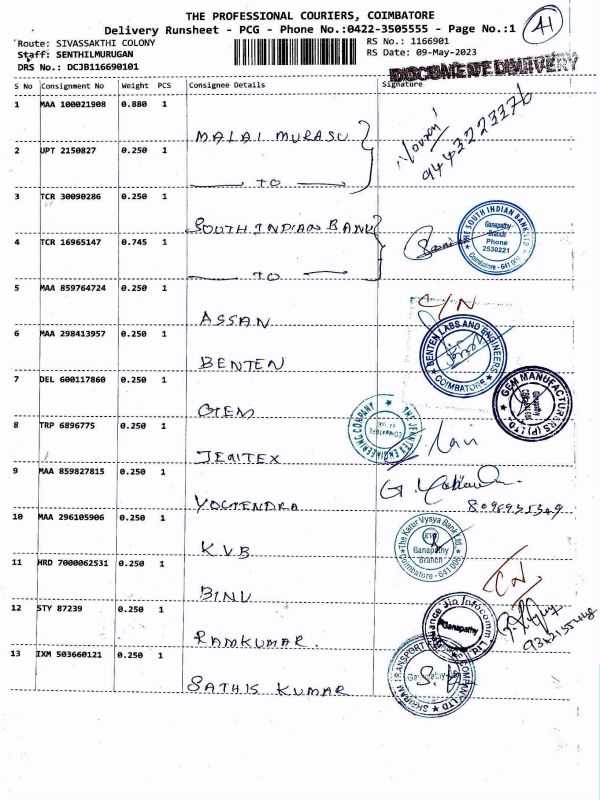 THE PROFESSIONAL COURIERS, COIMBATORE
Delivery Runsheet - PCG - Phone No.:0422-3505555 - Page No.:1
41
Route: SIVASSAKTHI COLONY
RS No.: 1166901
Staff: SENTHILMURUGAN
RS Date: 09-May-2023
DRS No.: DCJB116690101
S No Consignment No Weight PCS Consignee Details Signature
1 MAA 100021908 0.880 1
MALAI MURASU
9443223376
2 UPT 2150827 0.250 1
TO
3 TCR 30090286 0.250 1
SOUTH INDIAN BANK
THE SOUTH INDIAN BANK LTD
Ganapathy
Branch
Phone
2530221
Coimbatore - 641 006
4 TCR 16965147 0.745 1
TO
5 MAA 859764724 0.250 1
ASSAN
C/N
6 MAA 298413957 0.250 1
BENTEN
BENTEN LABS AND ENGINEERS
COIMBATORE
7 DEL 600117860 0.250 1
GEM
GEM MANUFACTURERS (P) LTD.
8 TRP 6896775 0.250 1
JEMTEX
ENGINEERING COMPANY
9 MAA 859827815 0.250 1
YOGENDRA
10 MAA 296105906 0.250 1
KVB
The Karur Vysya Bank Ltd.
KVB
Ganapathy
Branch
Coimbatore - 641 006
11 HRD 7000062531 0.250 1
BINU
CN
12 STY 87239 0.250 1
RAMKUMAR
Reliance Jio Infocomm Ltd
Ganapathy
13 IXM 503660121 0.250 1
SATHIS KUMAR
SHRIRAM TRANSPORT
COMPANY LTD